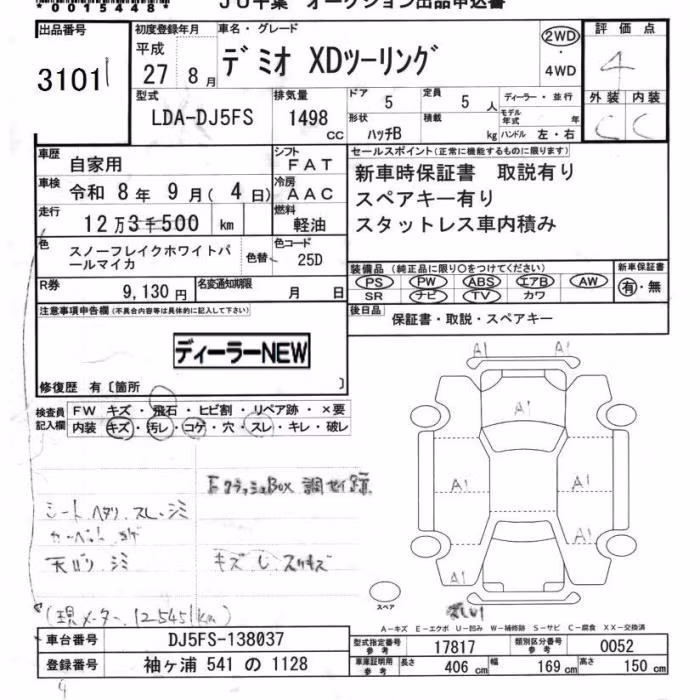 *0015448*
JU千葉 オークション出品申込書
出品番号
31011
初度登録年月
平成
27 8月
車名・グレード
デミオ XDツーリング
2WD
・
4WD
評価点
4
外装 内装
C C
型式
LDA-DJ5FS
排気量
1498
CC
ドア 5
定員 5 人
形状 ハッチB
積載 kg
ディーラー・並行
モデル年式 年
ハンドル 左・右
車歴 自家用
シフト FAT
車検 令和 8年 9月( 4日)
冷房 AAC
走行 12万3千500 km
燃料 軽油
色 スノーフレイクホワイトパールマイカ
色替
色コード 25D
R券 9,130円
名変通知期限 月 日
セールスポイント(正常に機能するものに限ります)
新車時保証書 取説有り
スペアキー有り
スタットレス車内積み
装備品(純正品に限り○をつけてください)
PS PW ABS エアB AW
SR ナビ TV カワ
新車保証書
有・無
後日品 保証書・取説・スペアキー
注意事項申告欄(不具合内容等は具体的に記入して下さい)
ディーラーNEW
修復歴 有〔箇所 〕
検査員記入欄
FW キズ・飛石・ヒビ割・リペア跡・×要
内装 キズ・汚レ・コゲ・穴・スレ・キレ・破レ
シートヘタリ.スレ.シミ
天バリ シミ
(現メーター 125451km)
A1
A1
A1
A1
A1
A1
A1
A1
スペア
A-キズ E-エクボ U-凹み W-補修跡 S-サビ C-腐食 XX-交換済
車台番号 DJ5FS-138037
登録番号 袖ヶ浦 541 の 1128
型式指定番号 参考 17817
類別区分番号 参考 0052
車庫証明用 参考 長さ 406 cm 幅 169 cm 高さ 150 cm